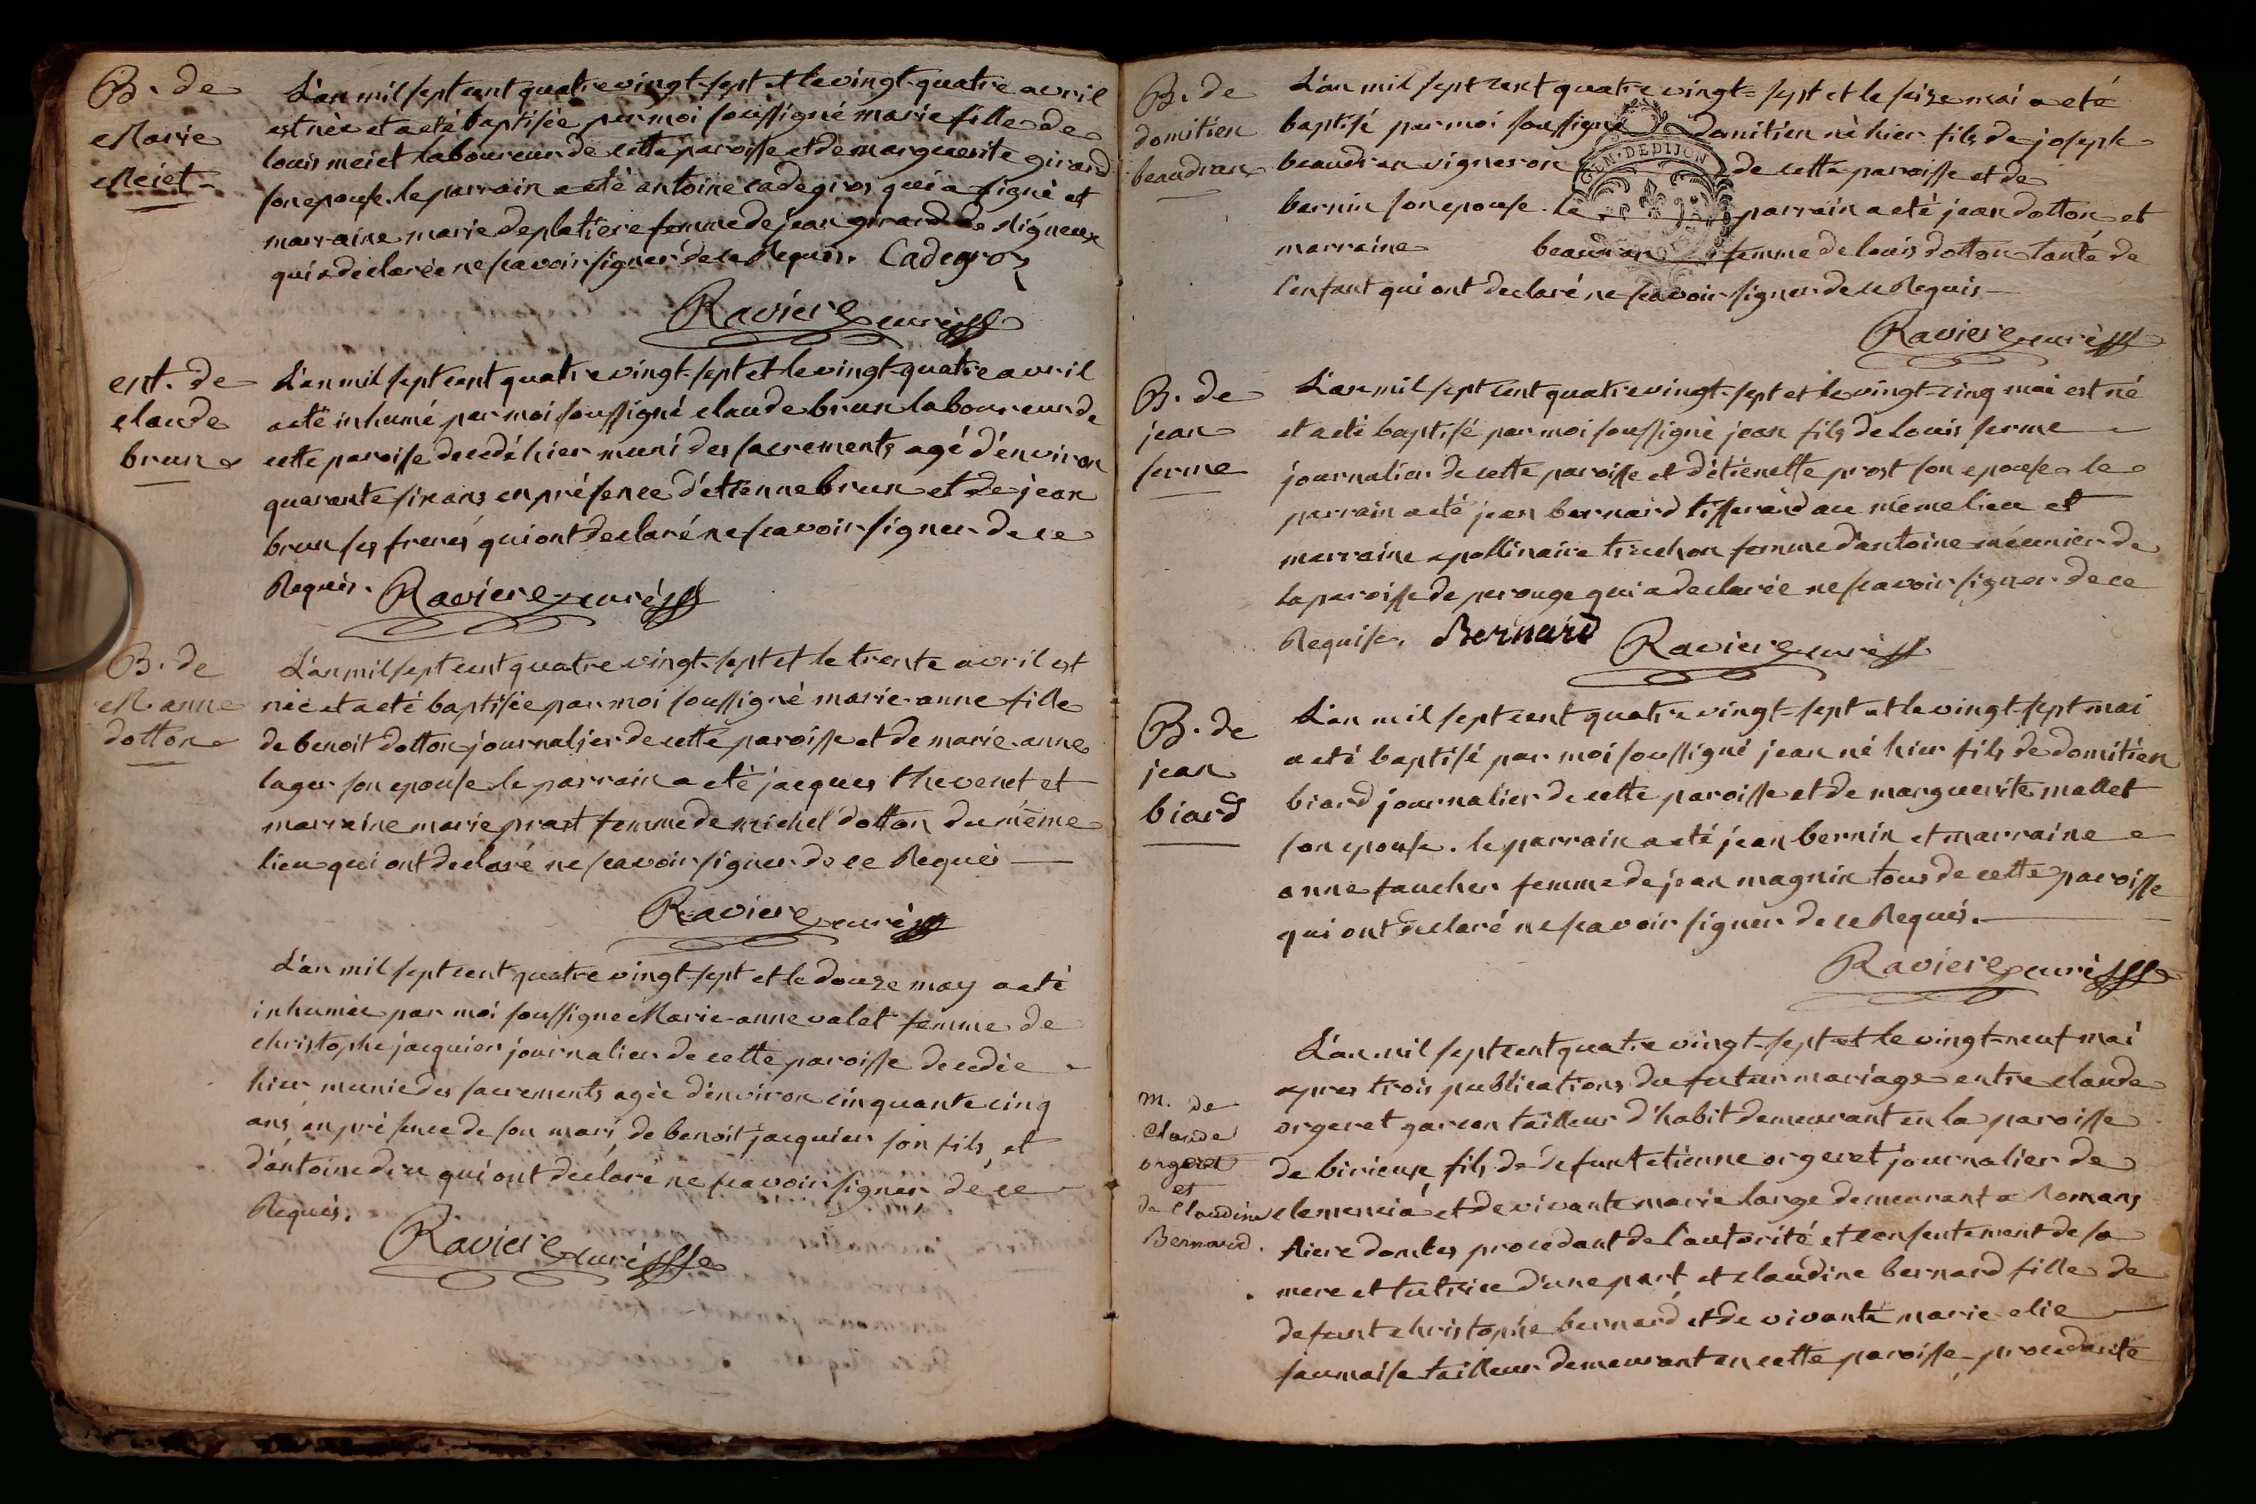 B. de
Marie
Meiet
L'an mil sept cent quatre vingt-sept et le vingt-quatre avril
est née et a eté baptisée par moi soussigné marie fille de
louis meiet laboureur de cette paroisse et de marguerite girard
son epouse. le parrain a eté antoine cadegros qui a signé et
marraine marie deplatiere femme de jean girard de
qui a declarée ne scavoir signer de ce Requis. Cadegros
Raviere curé
ent. de
claude
brun
L'an mil sept cent quatre vingt-sept et le vingt-quatre avril
a eté inhumé par moi soussigné claude brun laboureur de
cette paroisse decedé hier muni des sacrements agé d'environ
quarante six ans en présence d'etienne brun et de jean
brun ses freres qui ont declaré ne scavoir signer de ce
Requis. Raviere curé
B. de
M. anne
dotton
L'an mil sept cent quatre vingt-sept et le trente avril est
née et a eté baptisée par moi soussigné marie-anne fille
de benoit dotton journalier de cette paroisse et de marie-anne
lager son epouse le parrain a eté jacques thevenet et
marraine marie prost femme de michel dotton du même
lieu qui ont declaré ne scavoir signer de ce Requis
Raviere curé
L'an mil sept cent quatre vingt-sept et le douze may a eté
inhumée par moi soussigné Marie-anne valet femme de
christophe jacquier journalier de cette paroisse decedée
hier munie des sacrements agée d'environ cinquante cinq
ans, en présence de son mari, de benoit jacquier son fils, et
d'antoine qui ont declaré ne scavoir signer de ce
Requis.
Raviere curé
B. de
domitien
beaudran
L'an mil sept cent quatre vingt-sept et le seize mai a eté
baptisé par moi soussigné domitien né hier fils de joseph
beaudran vigneron de cette paroisse et de
bernin son epouse. le parrain a eté jean dotton et
marraine beaudran femme de louis dotton tante de
l'enfant qui ont declaré ne scavoir signer de ce Requis
DE DIJON
Raviere curé
B. de
jean
serme
L'an mil sept cent quatre vingt-sept et le vingt-cinq mai est né
et a eté baptisé par moi soussigné jean fils de Louis serme
journalier de cette paroisse et d'étienette prost son epouse le
parrain a eté jean bernard tisserand au même lieu et
marraine apollinaire truchon femme d'antoine méunier de
la paroisse de perouge qui a declarée ne scavoir signer de ce
Requise. Bernard Raviere curé
B. de
jean
biard
L'an mil sept cent quatre vingt-sept et le vingt-sept mai
a eté baptisé par moi soussigné jean né hier fils de domitien
biard journalier de cette paroisse et de marguerite mallet
son epouse. le parrain a eté jean bernin et marraine
anne faucher femme de jean magnin tous de cette paroisse
qui ont declaré ne scavoir signer de ce Requis.
Raviere curé
m. de
Claude
orgeret
et
de Claudine
Bernard.
L'an mil sept cent quatre vingt-sept et le vingt-neuf mai
apres trois publications du futur mariage entre claude
orgeret garcon tailleur d'habit demeurant en la paroisse
de birieux, fils de defunt etienne orgeret journalier de
et de vivante marie large demeurant a Romans
procedant de l'autorité et consentement de sa
mere et tutrice d'une part, et claudine bernard fille de
defunt christophe bernard et de vivante marie elie
tailleur demeurant en cette paroisse, procedante